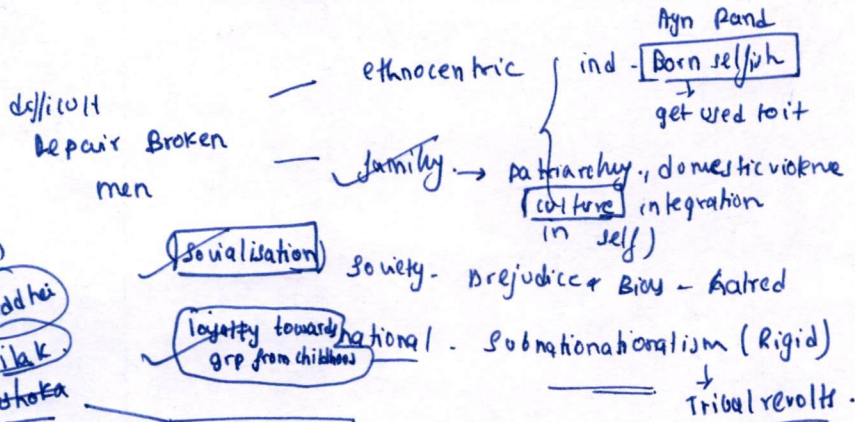 Ayn Rand
ethnocentric { ind - Born selfish
↓
get used to it
difficult
Repair Broken
men
family. → patriarchy, domestic violence
culture integration
in self)
socialisation
society - Prejudice & Bias - hatred
loyalty towards
grp from childhood
national - Subnationationalism (Rigid)
↓
Tribal revolts.
ilak
shoka